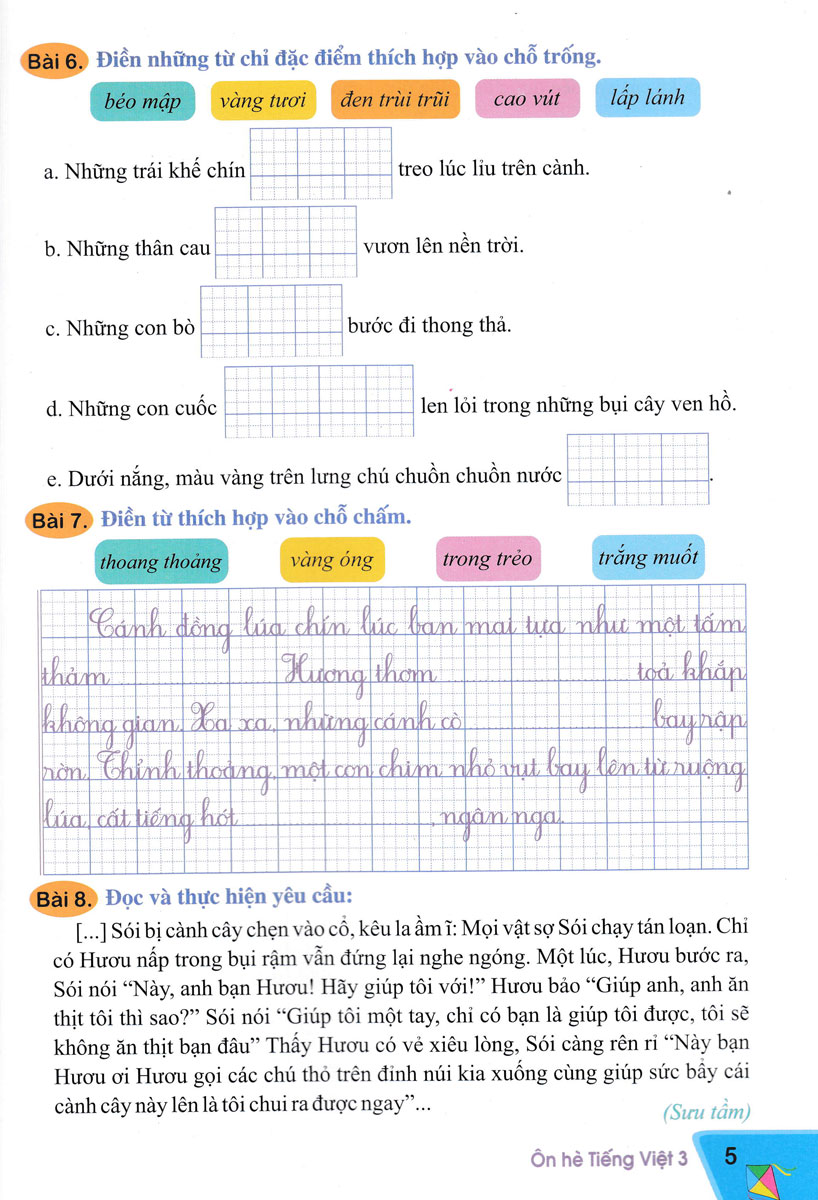 Bài 6. Điền những từ chỉ đặc điểm thích hợp vào chỗ trống.
béo mập vàng tươi đen trùi trũi cao vút lấp lánh
a. Những trái khế chín treo lúc lỉu trên cành.
b. Những thân cau vươn lên nền trời.
c. Những con bò bước đi thong thả.
d. Những con cuốc len lỏi trong những bụi cây ven hồ.
e. Dưới nắng, màu vàng trên lưng chú chuồn chuồn nước .
Bài 7. Điền từ thích hợp vào chỗ chấm.
thoang thoảng vàng óng trong trẻo trắng muốt
Cánh đồng lúa chín lúc ban mai tựa như một tấm
thảm Hương thơm toả khắp
không gian. Xa xa, những cánh cò bay rập
rờn. Thỉnh thoảng, một con chim nhỏ vụt bay lên từ ruộng
lúa, cất tiếng hót , ngân nga.
Bài 8. Đọc và thực hiện yêu cầu:
[...] Sói bị cành cây chẹn vào cổ, kêu la ầm ĩ: Mọi vật sợ Sói chạy tán loạn. Chỉ
có Hươu nấp trong bụi rậm vẫn đứng lại nghe ngóng. Một lúc, Hươu bước ra,
Sói nói “Này, anh bạn Hươu! Hãy giúp tôi với!” Hươu bảo “Giúp anh, anh ăn
thịt tôi thì sao?” Sói nói “Giúp tôi một tay, chỉ có bạn là giúp tôi được, tôi sẽ
không ăn thịt bạn đâu” Thấy Hươu có vẻ xiêu lòng, Sói càng rên rỉ “Này bạn
Hươu ơi Hươu gọi các chú thỏ trên đỉnh núi kia xuống cùng giúp sức bẩy cái
cành cây này lên là tôi chui ra được ngay”...
(Sưu tầm)
Ôn hè Tiếng Việt 3 5